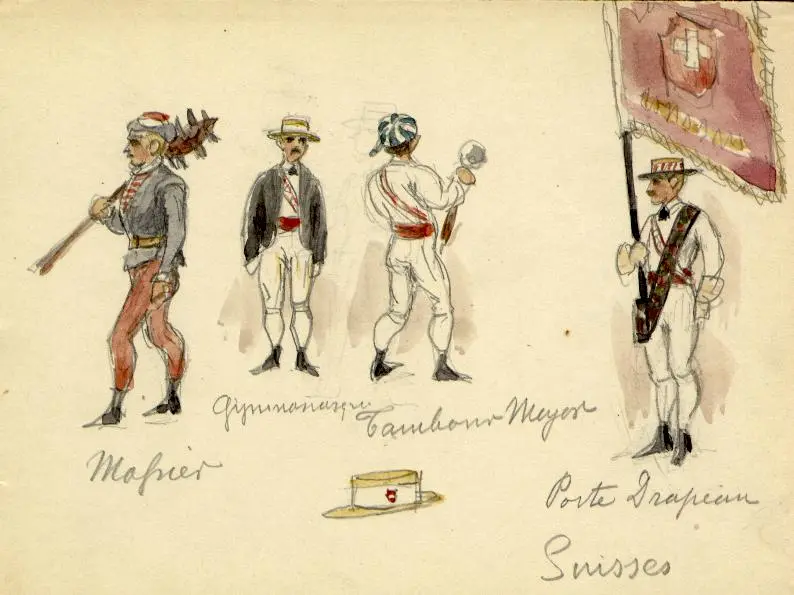 Gymnasasque
Tambour Mayor
Porte Drapeau
Suisses